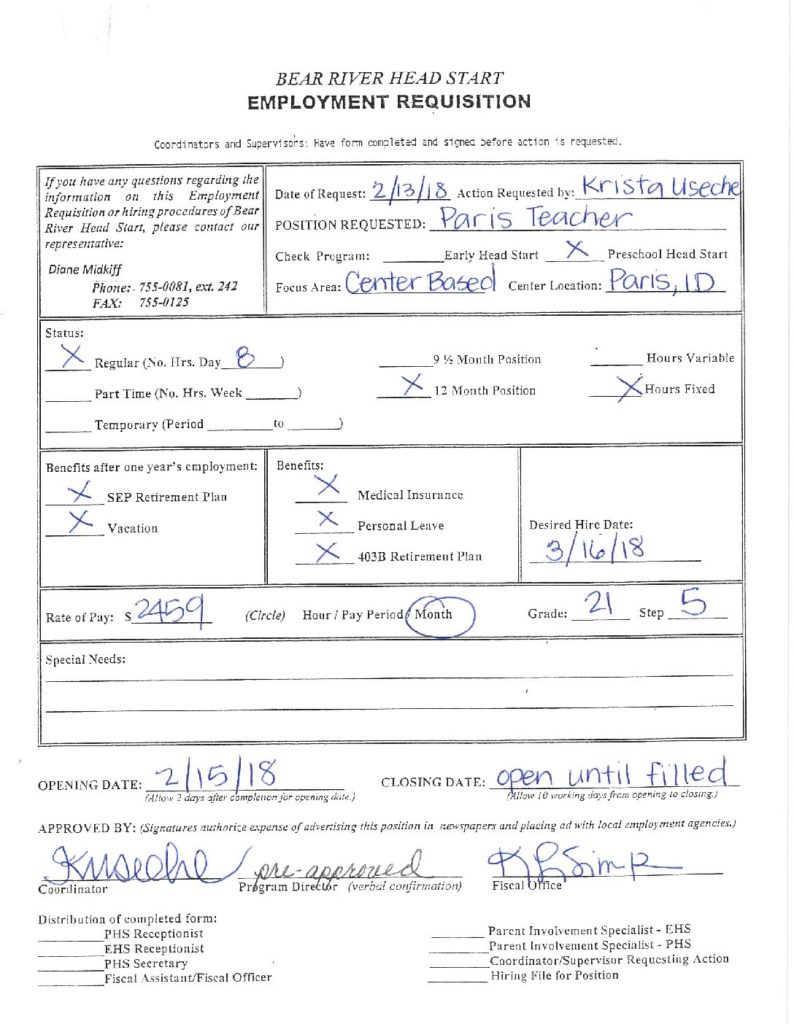 BEAR RIVER HEAD START
EMPLOYMENT REQUISITION
Coordinators and Supervisors: Have form completed and signed before action is requested.
If you have any questions regarding the
information on this Employment
Requisition or hiring procedures of Bear
River Head Start, please contact our
representative:
Diane Midkiff
Phone: 755-0081, ext. 242
FAX: 755-0125
Date of Request: 2/13/18 Action Requested by: Krista Useche
POSITION REQUESTED: Paris Teacher
Check Program: ______ Early Head Start X Preschool Head Start
Focus Area: Center Based Center Location: Paris, ID
Status:
X Regular (No. Hrs. Day 8 ) ______ 9 ½ Month Position ______ Hours Variable
______ Part Time (No. Hrs. Week ______) X 12 Month Position X Hours Fixed
______ Temporary (Period ______ to ______)
Benefits after one year's employment:
X SEP Retirement Plan
X Vacation
Benefits:
X Medical Insurance
X Personal Leave
X 403B Retirement Plan
Desired Hire Date:
3/16/18
Rate of Pay: $ 2459 (Circle) Hour / Pay Period / Month Grade: 21 Step 5
Special Needs:
OPENING DATE: 2/15/18 CLOSING DATE: open until filled
(Allow 2 days after completion for opening date.) (Allow 10 working days from opening to closing.)
APPROVED BY: (Signatures authorize expense of advertising this position in newspapers and placing ad with local employment agencies.)
KUseche pre-approved
Coordinator Program Director (verbal confirmation) Fiscal Office
Distribution of completed form:
______ PHS Receptionist
______ EHS Receptionist
______ PHS Secretary
______ Fiscal Assistant/Fiscal Officer
______ Parent Involvement Specialist - EHS
______ Parent Involvement Specialist - PHS
______ Coordinator/Supervisor Requesting Action
______ Hiring File for Position